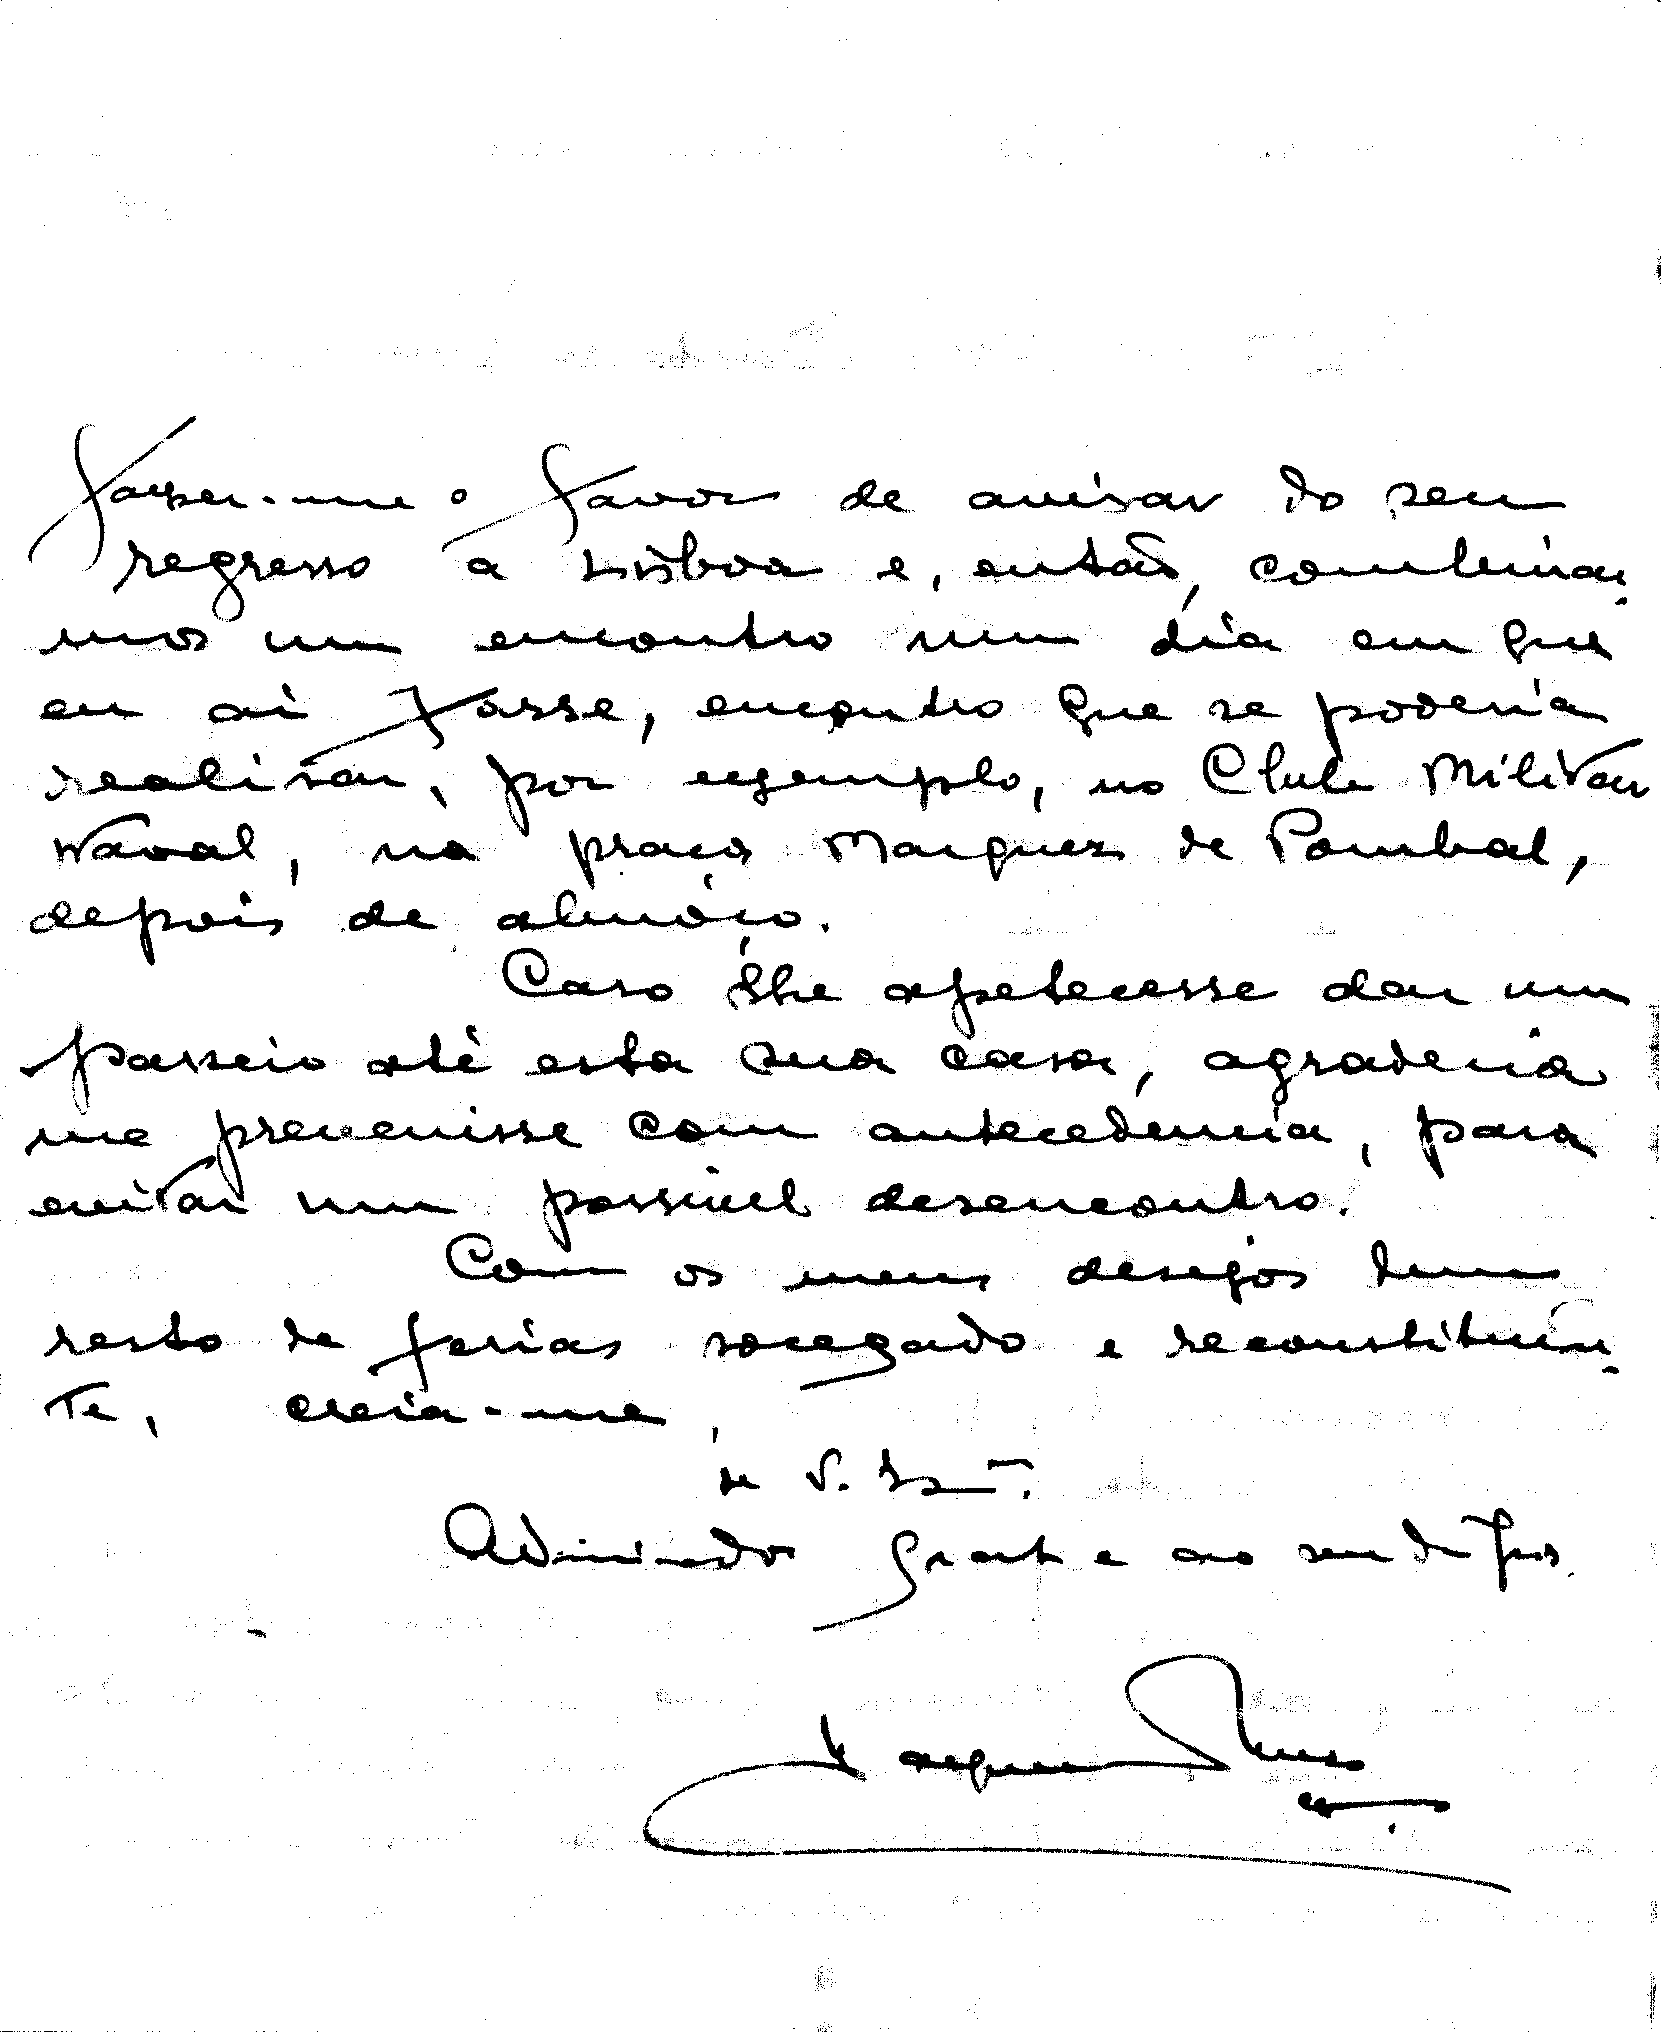 Fazer-me o favor de avisar do seu
regresso a Lisboa e, então, combinar-
mos um encontro num dia em que
eu aí fosse, encontro que se poderia
realisar, por exemplo, no Clube Militar
Naval, na praça Marquez de Pombal,
depois de almôço.
Caso lhe apetecesse dar um
passeio até esta sua casa, agradecia
me prevenisse com antecedencia, para
evitar um possivel desencontro.
Com os meus desejos dum
resto de ferias socegado e reconstituin-
te, creia-me,
de V. Exª.
Admirador grato e ao seu dispor